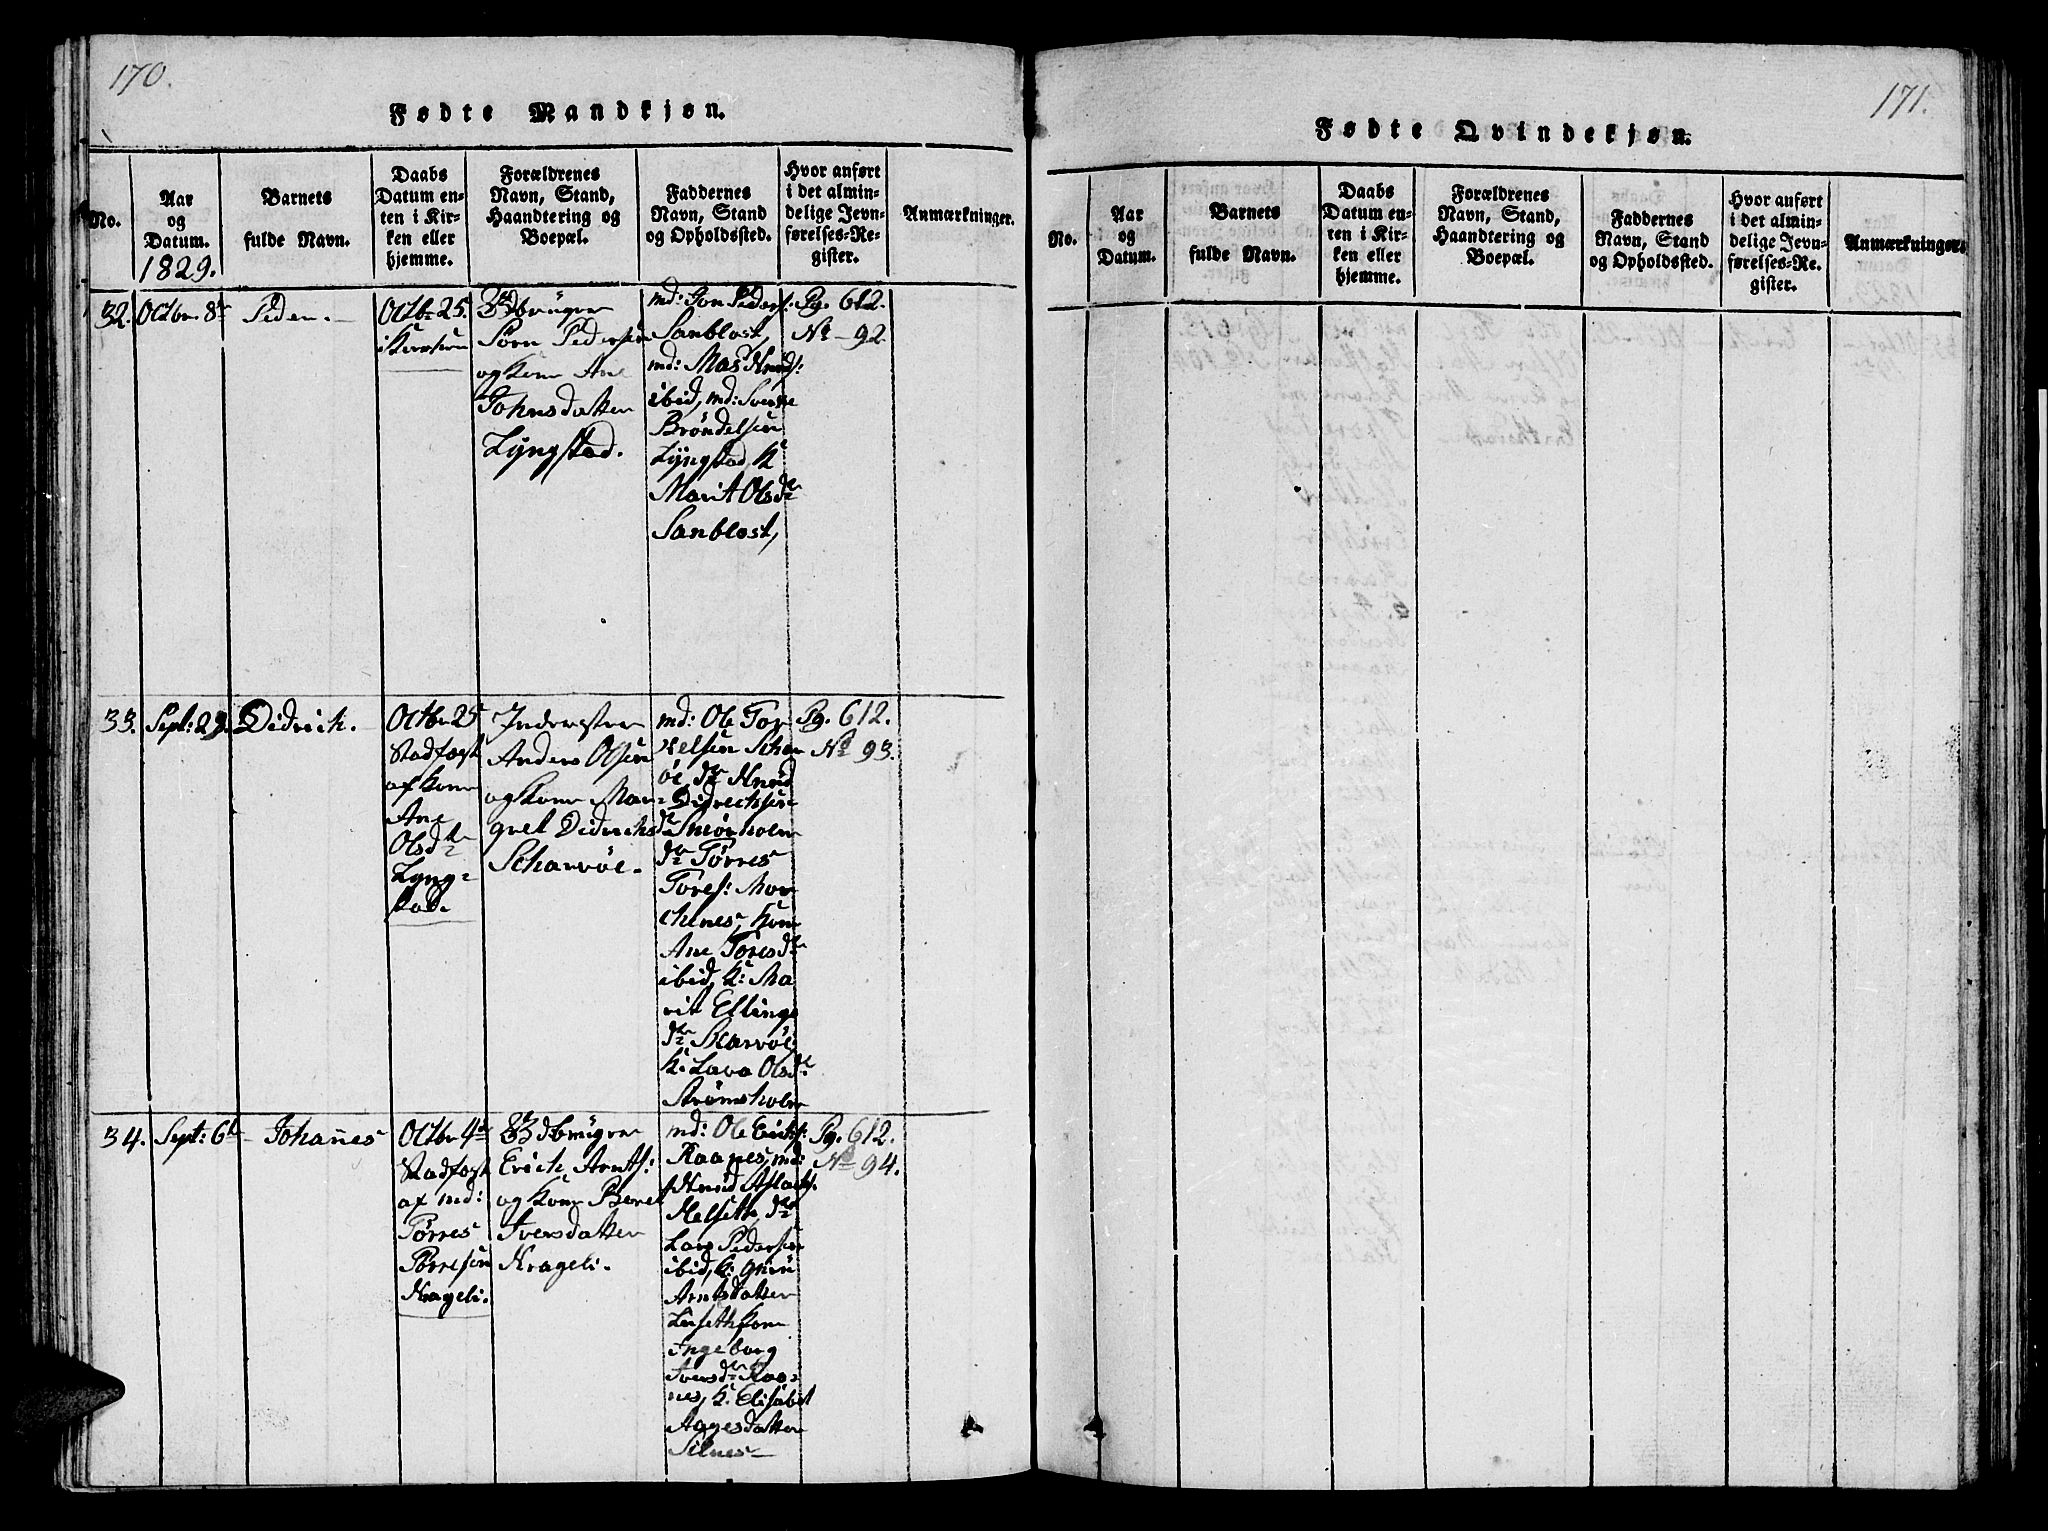 170.
Fødte Mandkjøn.
No.
Aar
og
Datum.
1829.
Barnets
fulde Navn.
Daabs
Datum en-
ten i Kir-
ken eller
hjemme.
Forældrenes
Navn, Stand,
Haandtering og
Boepæl.
Faddernes
Navn, Stand
og Opholdssted.
Hvor anført
i det almin-
delige Jevn-
førelses-Re-
gister.
Anmærkninger.
32.
Octbr 8de
Peder.
Octbr 25.
i Kirken
Gdbruger
Sørn Pedersen
og Kone Ane
Johnsdatter
Lyngstad.
md: Jon Peders:
Sanblost,
md: Mas Knuds:
ibid, md: Sverke
Brøndelsen
Lyngstad, K
Marit Olsdtr
Sanblost,
Pg. 612.
No 92
33.
Sept: 29.
Didrich.
Octbr 25
Stadfæst
af Kone
Ane
Olsdtr
Lyng-
stad.
Inderster
Anders Olsen
og Kone Mar-
gret Didrichsd
Scharvøe.
md: Ole Tor
Nelsen Schar
øe dr Knud
Didrechsen
Strømsholm
dr Tørres
Tores: Mor
chenes, Kone
Ane Toresdr
ibid, K: Ma
rit Ellings
dr Skarvøe
K: Lava Olsdr
Strømsholm
Pg. 612.
No 93.
34.
Sept: 6te
Johannes
Octbr 4de
Stadfæst
af md:
Tørres
Tørresen
Krageli.
Gdbruger
Erich Arnts:
og Kone Beret
Iversdatter
Krageli.
md: Ole Erichs:
Raanes, md:
Knud Aslachs.
Helsette, dr
Lars Pedersen
ibid, K: Guru
Arntsdatter
Liseth Kone
Ingeborg
Iversdr Raa-
nes, K. Elisabet
Aagesdatter
Silnes
Pg. 612.
No 94.
171.
Fødte Qvindekjøn.
No.
Aar
og
Datum.
Barnets
fulde Navn.
Daabs
Datum en-
ten i Kir-
ken eller
hjemme.
Forældrenes
Navn, Stand,
Haandtering og
Boepæl.
Faddernes
Navn, Stand
og Opholdssted.
Hvor anført
i det almin-
delige Jevn-
førelses-Re-
gister.
Anmærkninger.